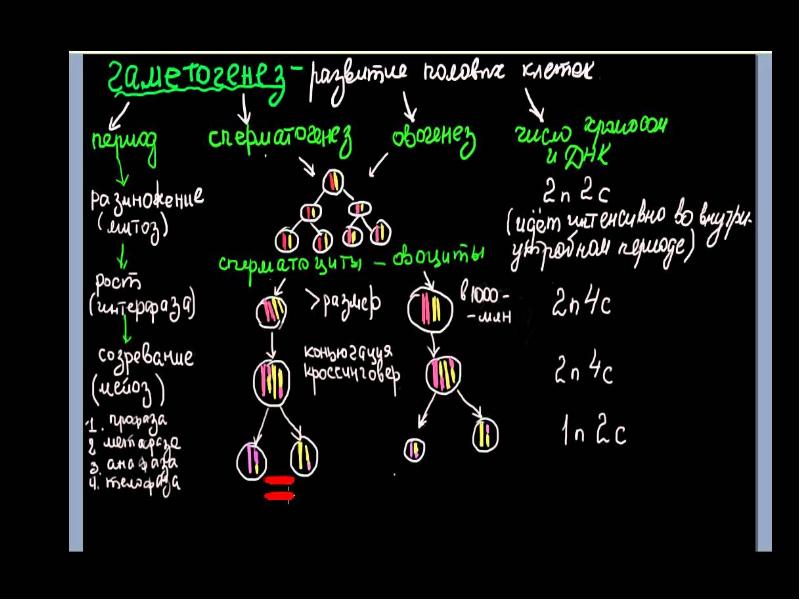 гаметогенез - развитие половых клеток
период
сперматогенез
овогенез
число хромосом
и ДНК
размножение
(митоз)
2n 2c
(идёт интенсивно во внутри-
утробном периоде)
сперматоциты - овоциты
рост
(интерфаза)
> размер
в 1000-
-млн
2n 4c
созревание
(мейоз)
коньюгация
кроссинговер
2n 4c
1. профаза
2 метафаза
3. анафаза
4. телофаза
1n 2c